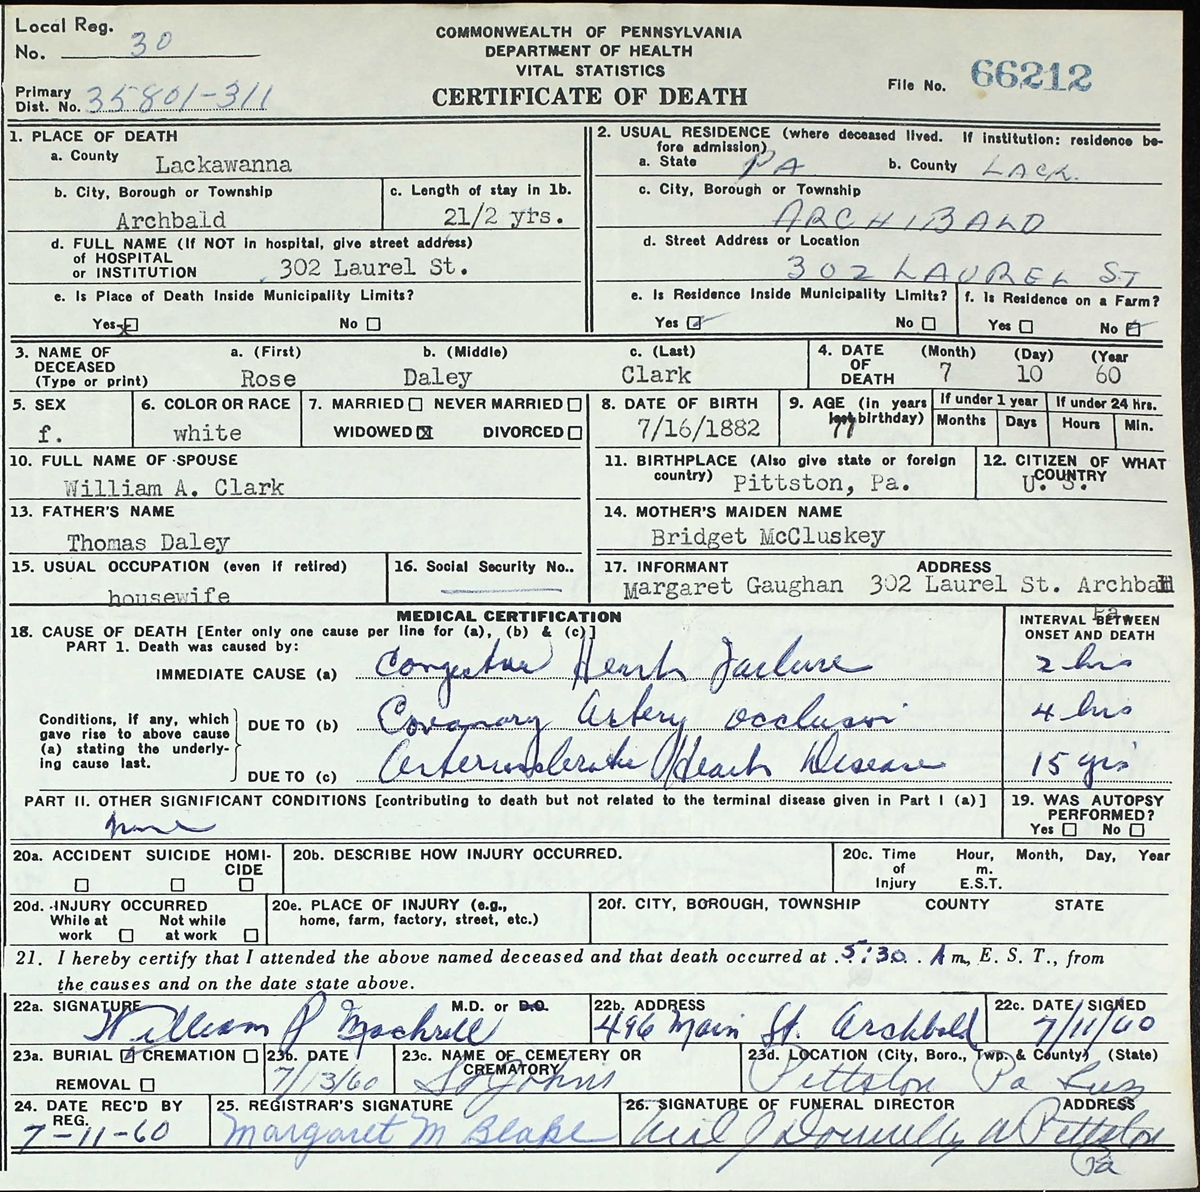 Local Reg. No. 30
COMMONWEALTH OF PENNSYLVANIA
DEPARTMENT OF HEALTH
VITAL STATISTICS
CERTIFICATE OF DEATH
File No. 66212
Primary Dist. No. 35801-311
1. PLACE OF DEATH
a. County Lackawanna
b. City, Borough or Township Archbald
c. Length of stay in 1b. 21/2 yrs.
d. FULL NAME (If NOT in hospital, give street address) of HOSPITAL or INSTITUTION 302 Laurel St.
e. Is Place of Death Inside Municipality Limits?
Yes x No
2. USUAL RESIDENCE (where deceased lived. If institution: residence before admission)
a. State PA b. County LACK.
c. City, Borough or Township ARCHIBALD
d. Street Address or Location 302 LAUREL ST
e. Is Residence Inside Municipality Limits? Yes No
f. Is Residence on a Farm? Yes No
3. NAME OF DECEASED (Type or print)
a. (First) Rose b. (Middle) Daley c. (Last) Clark
4. DATE OF DEATH (Month) 7 (Day) 10 (Year 60
5. SEX f.
6. COLOR OR RACE white
7. MARRIED NEVER MARRIED WIDOWED X DIVORCED
8. DATE OF BIRTH 7/16/1882
9. AGE (in years last birthday) 77
If under 1 year Months Days
If under 24 hrs. Hours Min.
10. FULL NAME OF SPOUSE William A. Clark
11. BIRTHPLACE (Also give state or foreign country) Pittston, Pa.
12. CITIZEN OF WHAT COUNTRY U. S.
13. FATHER'S NAME Thomas Daley
14. MOTHER'S MAIDEN NAME Bridget McCluskey
15. USUAL OCCUPATION (even if retired) housewife
16. Social Security No..
17. INFORMANT Margaret Gaughan ADDRESS 302 Laurel St. Archbald Pa
MEDICAL CERTIFICATION
18. CAUSE OF DEATH [Enter only one cause per line for (a), (b) & (c)]
INTERVAL BETWEEN ONSET AND DEATH
PART 1. Death was caused by:
IMMEDIATE CAUSE (a) Congestive Heart Failure 2 hrs
Conditions, if any, which gave rise to above cause (a) stating the underlying cause last.
DUE TO (b) Coronary Artery occlusion 4 hrs
DUE TO (c) Arteriosclerotic Heart Disease 15 yrs
PART II. OTHER SIGNIFICANT CONDITIONS [contributing to death but not related to the terminal disease given in Part I (a)]
none
19. WAS AUTOPSY PERFORMED? Yes No
20a. ACCIDENT SUICIDE HOMICIDE
20b. DESCRIBE HOW INJURY OCCURRED.
20c. Time of Injury Hour, m. E.S.T. Month, Day, Year
20d. INJURY OCCURRED While at work Not while at work
20e. PLACE OF INJURY (e.g., home, farm, factory, street, etc.)
20f. CITY, BOROUGH, TOWNSHIP COUNTY STATE
21. I hereby certify that I attended the above named deceased and that death occurred at 5:30 A m., E. S. T., from
the causes and on the date state above.
22a. SIGNATURE William P M.D. or D.O.
22b. ADDRESS 496 Main St. Archbald
22c. DATE SIGNED 7/11/60
23a. BURIAL CREMATION REMOVAL
23b. DATE 7/13/60
23c. NAME OF CEMETERY OR CREMATORY St Johns
23d. LOCATION (City, Boro., Twp. & County) (State) Pittston Pa Luz
24. DATE REC'D BY REG. 7-11-60
25. REGISTRAR'S SIGNATURE Margaret M Blake
26. SIGNATURE OF FUNERAL DIRECTOR Donnelly ADDRESS W Pittston Pa